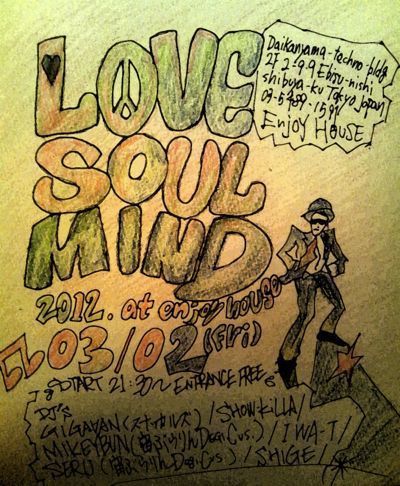 LOVE
SOUL
MIND
Daikanyama-techno-bldg
2F 2-9-9 Ebisu-nishi
shibuya-ku Tokyo Japan
Enjoy House
2012. at enjoy house
03/02 (Fri)
START 21:30~ ENTRANCE FREE
DJ's
GIGAVAN /SHOWKiLLA/
MIKEYBUN / IWA-T/
SERU / SHIGE/